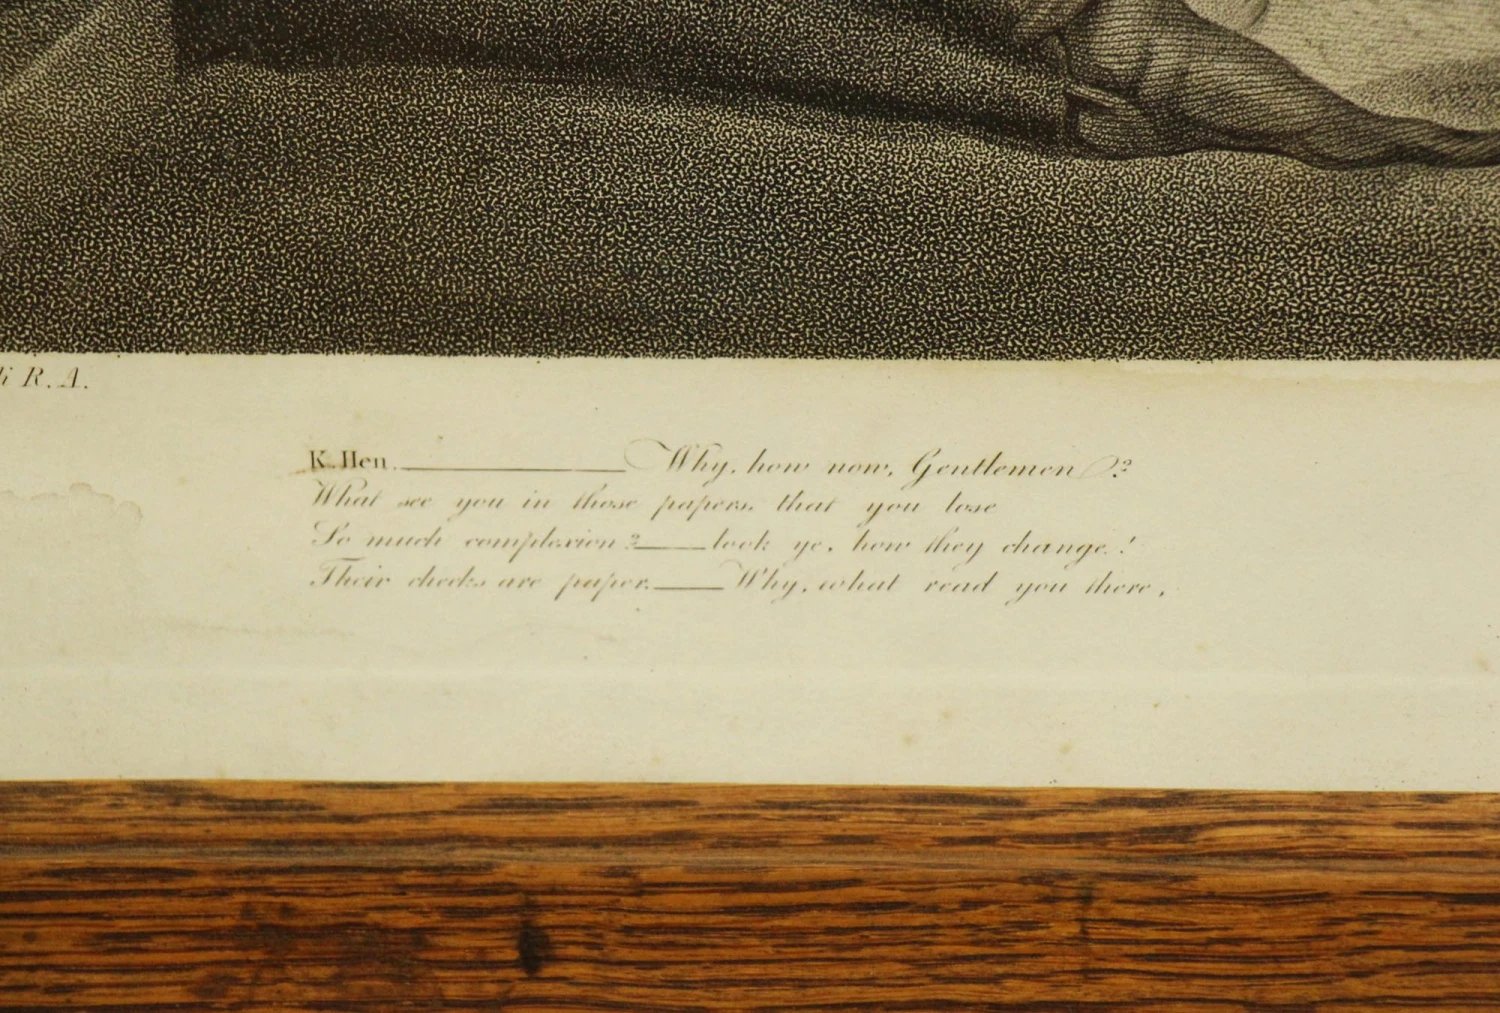 R. A.
K. Hen. ——— Why, how now, Gentlemen?
What see you in those papers, that you lose
So much complexion? —— look ye, how they change!
Their checks are paper. —— Why, what read you there,